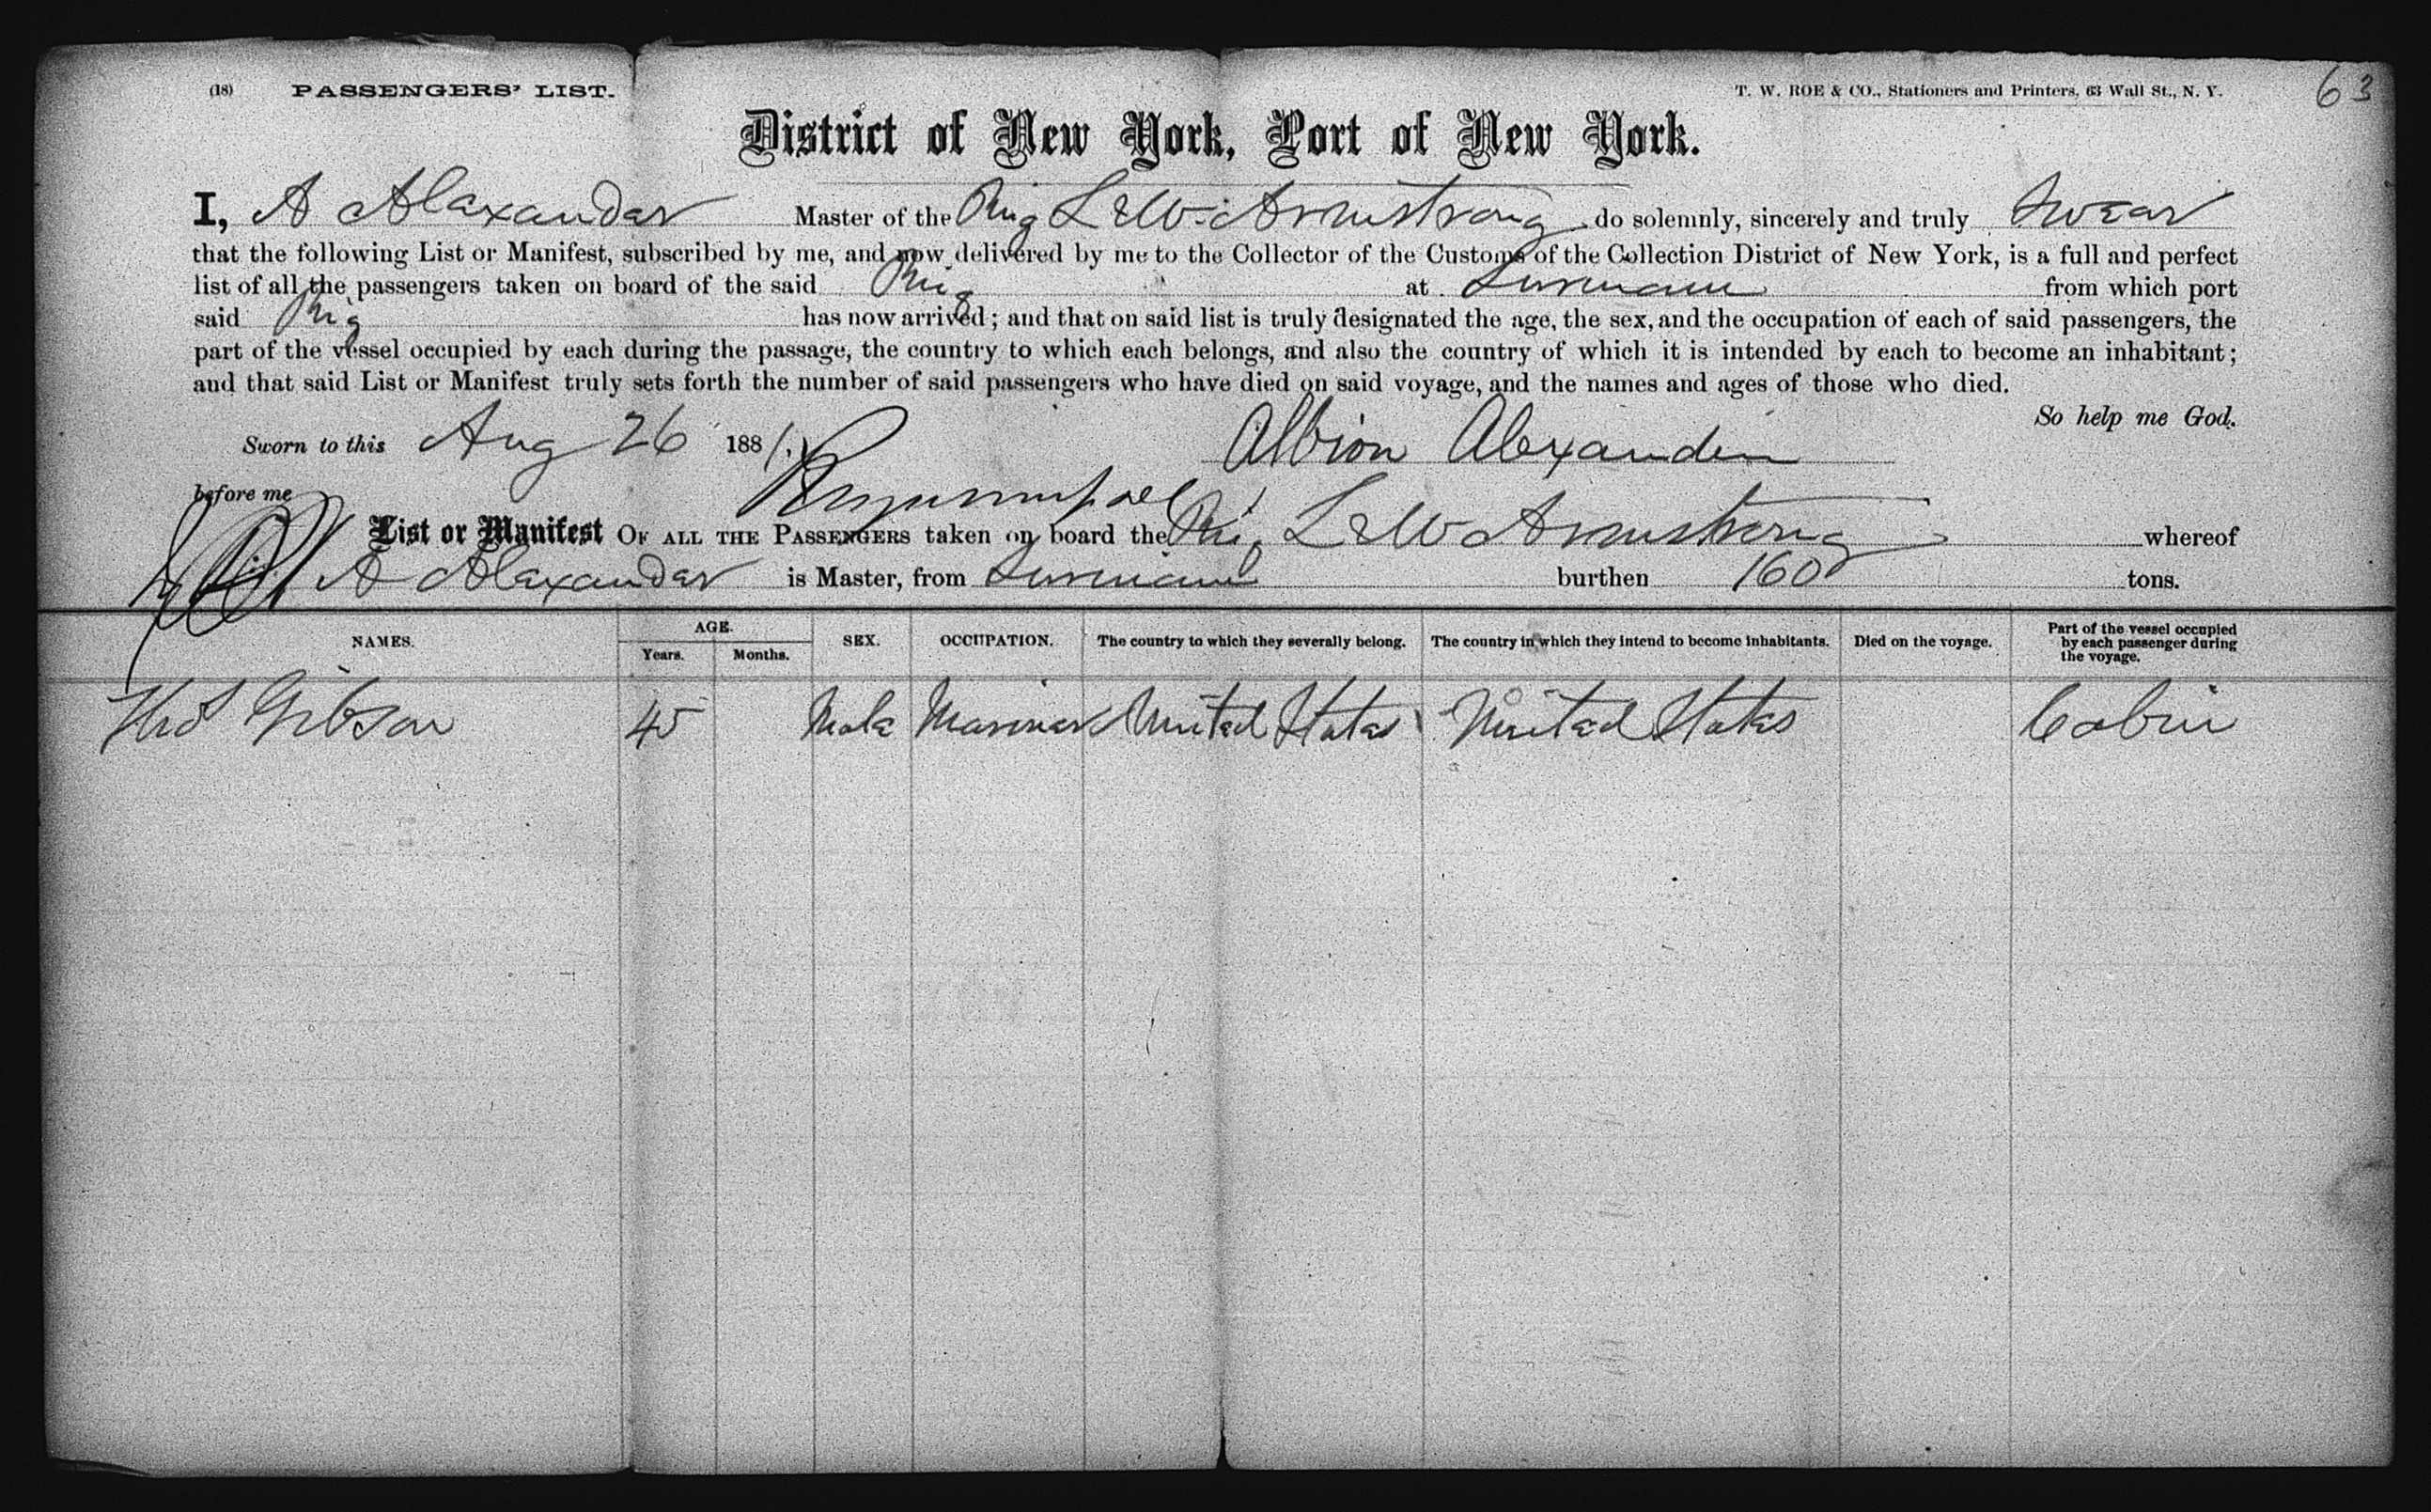 (18) PASSENGERS' LIST. T. W. ROE & CO., Stationers and Printers, 63 Wall St., N. Y. 63
District of New York, Port of New York.
I, A Alexander Master of the Brig L & W Armstrong do solemnly, sincerely and truly Swear
that the following List or Manifest, subscribed by me, and now delivered by me to the Collector of the Customs of the Collection District of New York, is a full and perfect
list of all the passengers taken on board of the said Brig at Surinam from which port
said Brig has now arrived; and that on said list is truly designated the age, the sex, and the occupation of each of said passengers, the
part of the vessel occupied by each during the passage, the country to which each belongs, and also the country of which it is intended by each to become an inhabitant;
and that said List or Manifest truly sets forth the number of said passengers who have died on said voyage, and the names and ages of those who died.
So help me God.
Sworn to this Aug 26 1881. Albion Alexander
before me
List or Manifest OF ALL THE PASSENGERS taken on board the Brig L & W Armstrong whereof
A Alexander is Master, from Surinam burthen 160 tons.
NAMES. AGE. Years. Months. SEX. OCCUPATION. The country to which they severally belong. The country in which they intend to become inhabitants. Died on the voyage. Part of the vessel occupied by each passenger during the voyage.
Thos Gibson 45 Male Mariner United States United States Cabin